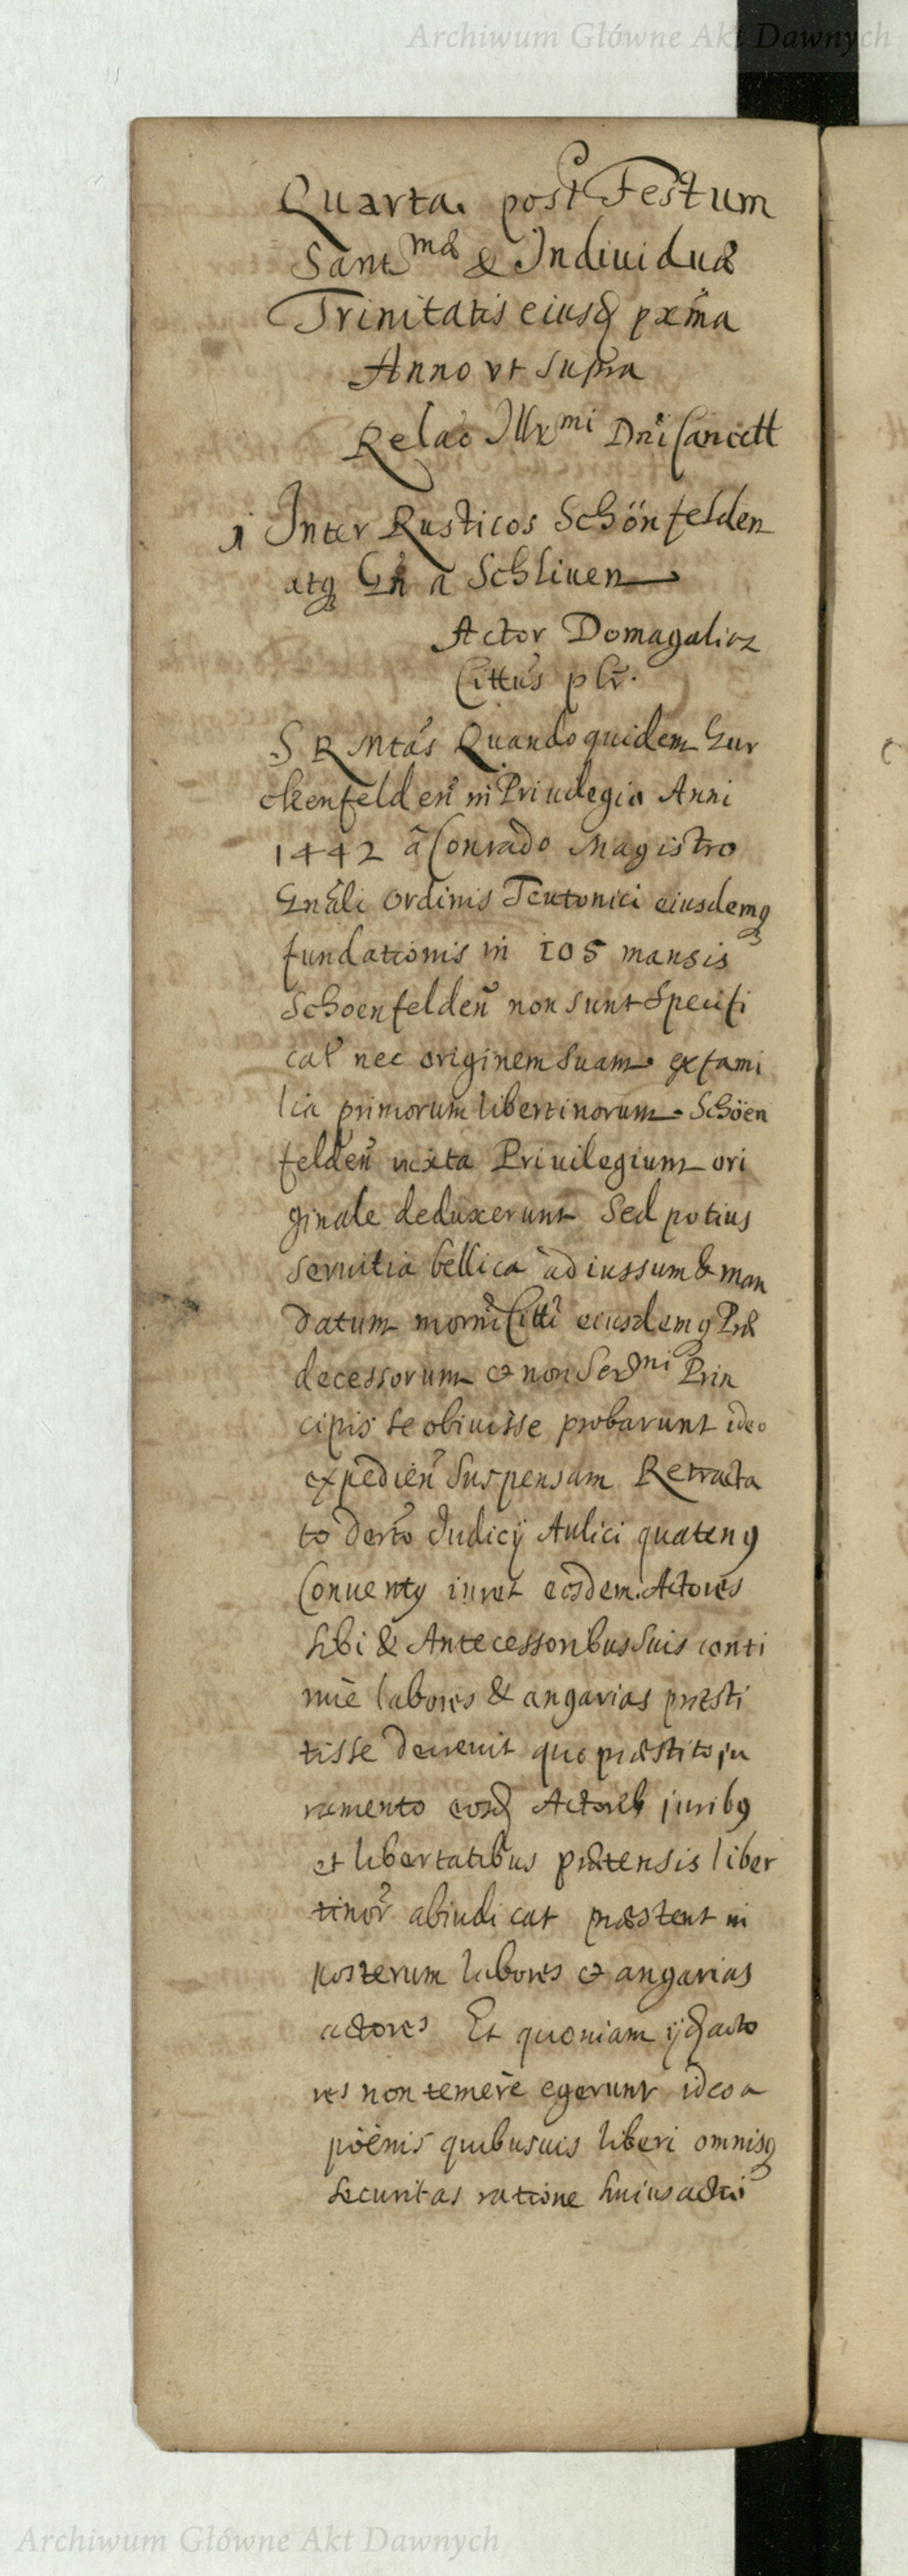 Archiwum Główne Akt Dawnych
Quarta post Festum
Sanct^mæ & Indiuiduæ
Trinitatis eiusq pxma
Anno vt supra
Relao Illr^mi Dni Cancell
1 Inter Rusticos Schönfelden
atq Gn a Schliuen
Actor Domagalicz
Cittus plr.
S R Mtas Quandoquidem Gur
ckenfelden in Priuilegio Anni
1442 â Conrado Magistro
Gnāli Ordinis Teutonici eiusdemq
fundationis in 105 mansis
Schoenfelden non sunt Specifi
cat nec originem suam ex fami
lia primorum libertinorum Schöen
felden iuxta Priuilegium ori
ginale deduxerunt Sed potius
seruitia bellica ad iussum & man
datum Citti eiusdemq Præ
decessorum et non Ser^mi Prin
cipis se obiuisse probarunt ideo
expedien suspensam Retracta
to Decto Iudicij Aulici quatenq
Conuentq iuret eosdem Actores
sibi & Antecessoribus Suis conti
nuè labores & angarias præsti
tisse decreuit quo præstito ju
ramento eosd Actoreb juribq
et libertatibus prætensis liber
tinor abiudicat præstent in
posterum labores et angarias
actores Et quoniam ijd acto
res non temerè egerunt ideo a
pöenis quibusuis liberi omnisq
securitas ratione huius actio
Archiwum Główne Akt Dawnych